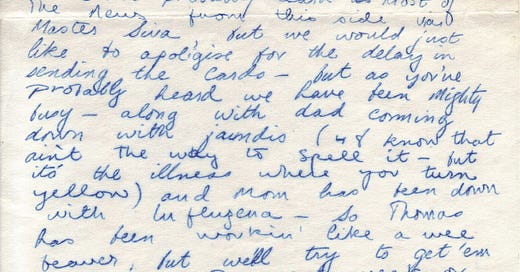 most of
The News from this side via
Master Siva but we would just
like to apoligise for the delay in
sending the cards – but as you've
probably heard we have been mighty
busy – along with dad coming
down with jaundis (I know that
ain't the way to spell it – but
it's the illness where you turn
yellow) and Mom has been down
with Influgena – so Thomas
has been workin' like a wee
beaver, but we'll try to get 'em